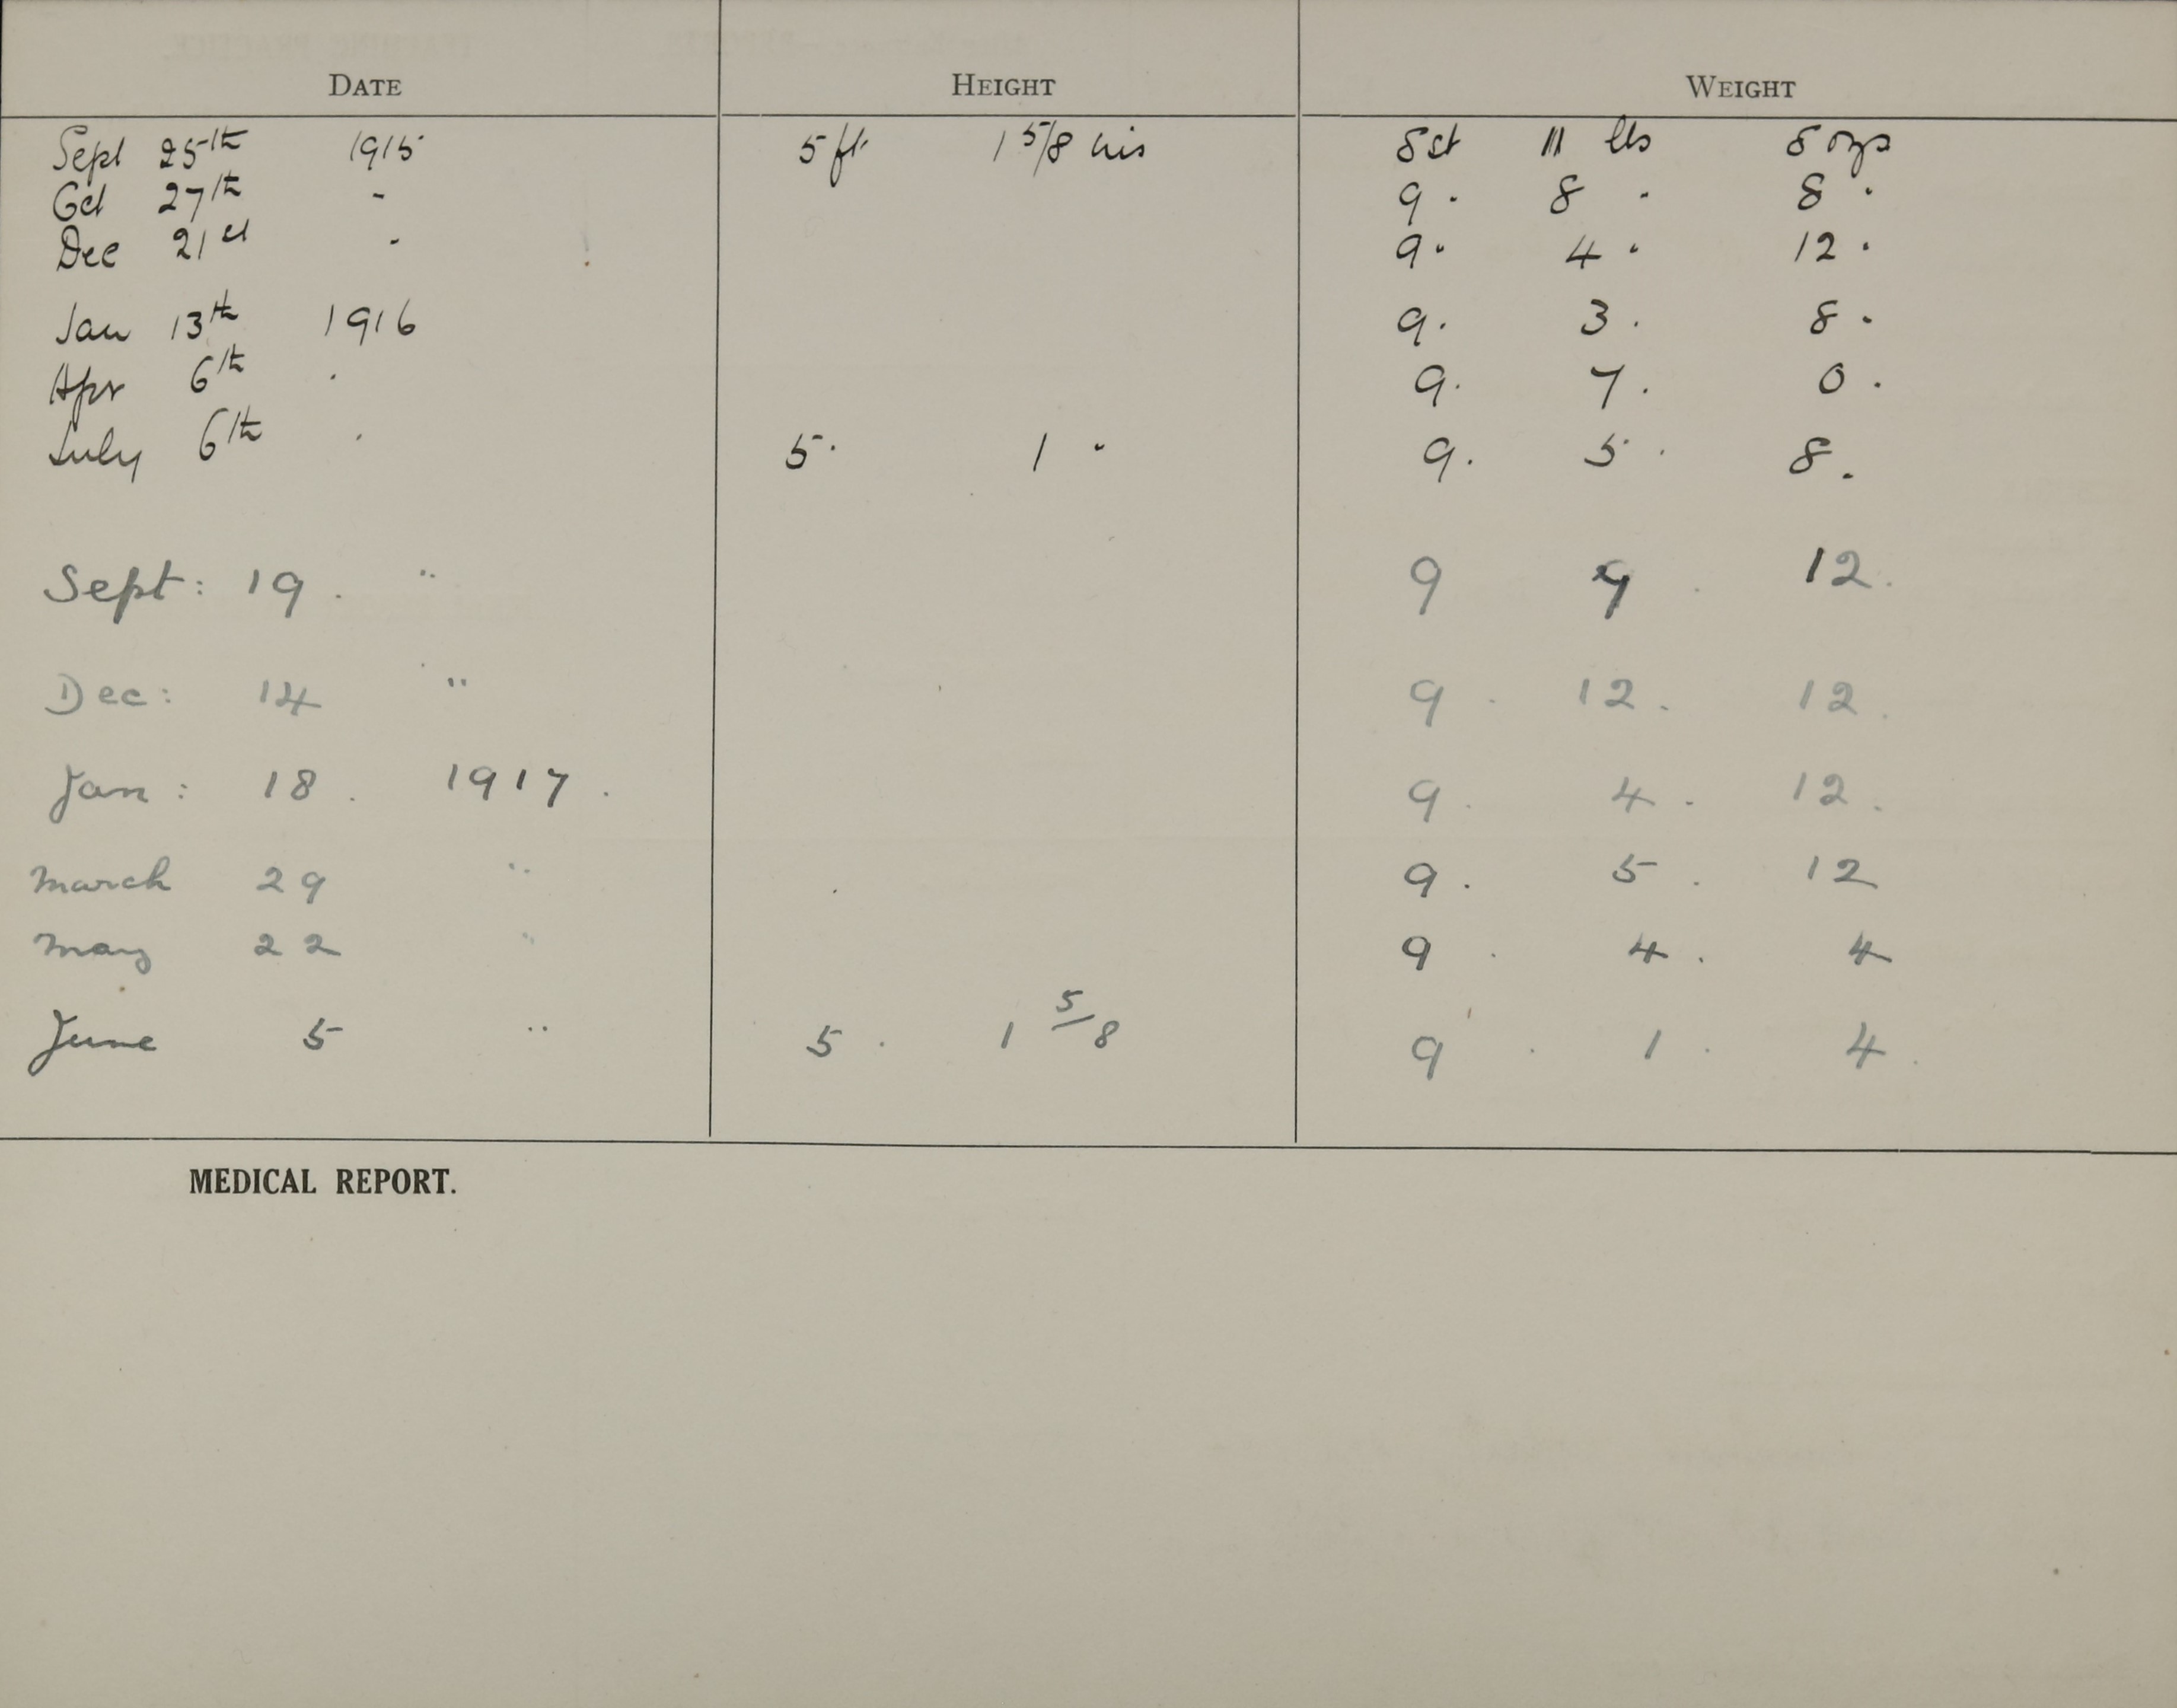 DATE HEIGHT WEIGHT
Sept 25th 1915 5 ft. 1 5/8 ins 8 st 11 lbs 8 ozs
Oct 27th - 9 . 8 . 8 .
Dec 21st - 9 . 4 . 12 .
Jan 13th 1916 9 . 3 . 8 .
Apr 6th . 9 . 7 . 0 .
July 6th . 5 . 1 . 9 . 5 . 8 .
Sept : 19 . " 9 . 12 .
Dec : 14 " 9 . 12 . 12 .
Jan : 18 . 1917 . 9 . 4 . 12 .
March 29 " 9 . 5 . 12
May 22 " 9 . 4 . 4
June 5 " 5 . 1 5/8 9 . 1 . 4 .
MEDICAL REPORT.